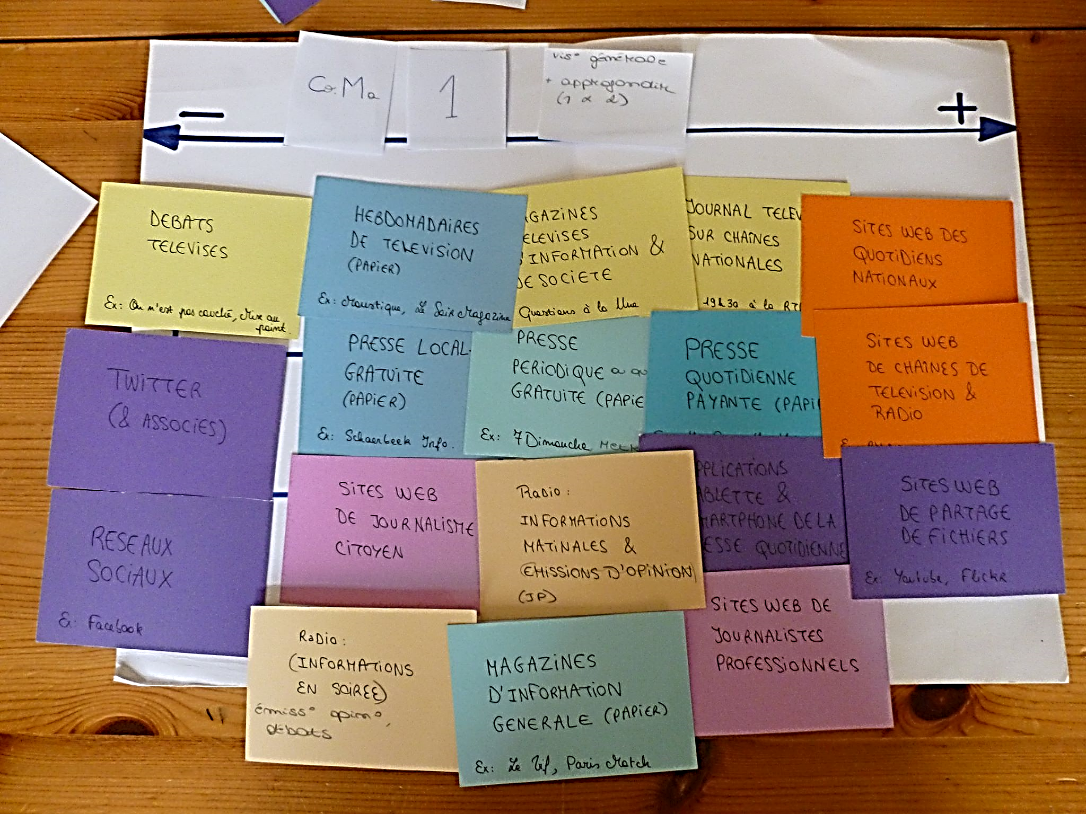 Co.Ma
1
vis° générale
+ approfondie
(1 & 2)
−
+
DEBATS
TELEVISES
Ex: On n'est pas couché, Mise au
point.
HEBDOMADAIRES
DE TELEVISION
(PAPIER)
Ex: Moustique, Le Soir Magazine
GAZINES
ELEVISES
INFORMATION &
DE SOCIETE
Questions à la Une
JOURNAL TELEV
SUR CHAÎNES
NATIONALES
19h30 à la RT
SITES WEB DES
QUOTIDIENS
NATIONAUX
TWITTER
(& ASSOCIES)
PRESSE LOCAL
GRATUITE
(PAPIER)
Ex: Schaerbeek Info.
PRESSE
PERIODIQUE ou qu
GRATUITE (PAPIE
Ex: 7Dimanche
PRESSE
QUOTIDIENNE
PAYANTE (PAPI
SITES WEB
DE CHAÎNES DE
TELEVISION &
RADIO
RESEAUX
SOCIAUX
Ex: Facebook
SITES WEB
DE JOURNALISME
CITOYEN
RADIO:
INFORMATIONS
MATINALES &
EMISSIONS D'OPINION
(JP)
PPLICATIONS
ABLETTE &
MARTPHONE DE LA
ESSE QUOTIDIENNE
SITES WEB
DE PARTAGE
DE FICHIERS
Ex: Youtube, Flickr
RADIO:
(INFORMATIONS
EN SOIREE)
émiss° opin°,
DEBATS
MAGAZINES
D'INFORMATION
GENERALE (PAPIER)
Ex: Le Vif, Paris Match
SITES WEB DE
JOURNALISTES
PROFESSIONNELS